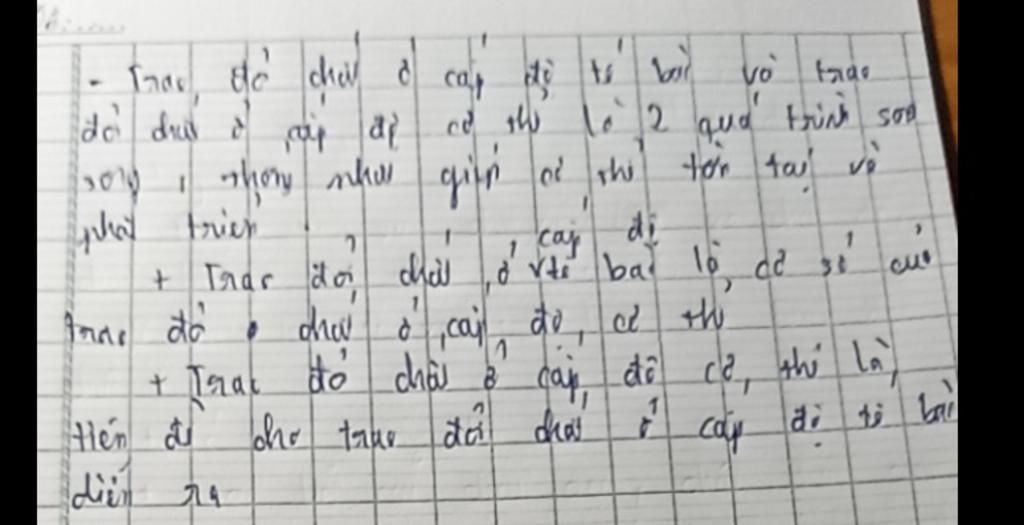 - Trao đổi chất ở cấp độ tế bào và trao
đổi chất ở cấp độ cơ thể là 2 quá trình song
song, nhau giúp cơ thể tồn tại và
phát triển
+ Trao đổi chất ở cấp độ tế bào là cơ sở của
trao đổi chất ở cấp độ cơ thể
+ Trao đổi chất ở cấp độ cơ thể là
tiền đề cho trao đổi chất ở cấp độ tế bào
diễn ra